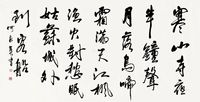 寒山寺夜
半鐘聲
月落烏啼
霜滿天江楓
漁火對愁眠
姑蘇城外
到客船